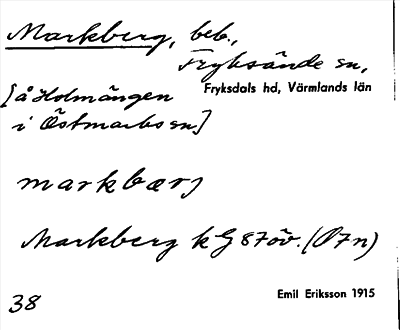 Markberg, beb.,
Fryksände sn,
Fryksdals hd, Värmlands län
[å Holmängen
i Östmarks sn.]
markbærj
Markberg k G 87öv. (07n)
38
Emil Eriksson 1915